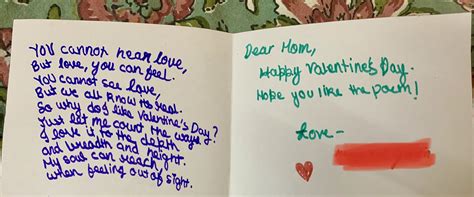 You cannot hear love,
But love, you can feel.
You cannot see love,
But we all know its real.
So why do I like Valentine's Day?
Just let me count the ways!
I love it to the depth
and breadth and height.
My soul can reach,
when feeling out of sight.
Dear Mom,
Happy Valentine's Day.
Hope you like the poem!
Love-